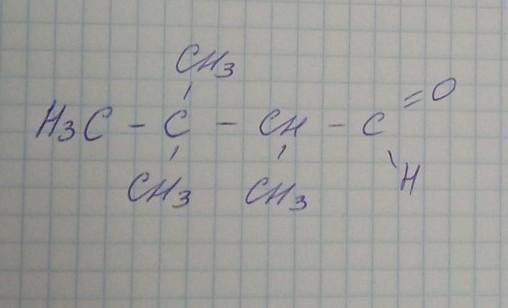 CH3
H3C - C - CH - C =O
CH3 CH3 H